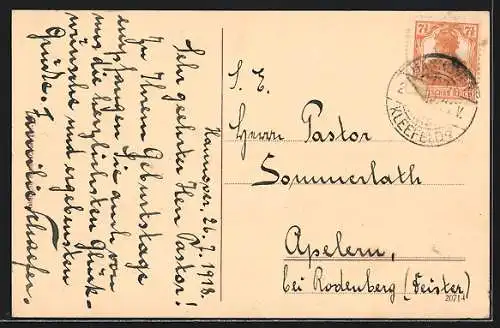 Hannover, 26.7.1918.
Sehr geehrter Herr Pastor!
Zu Ihrem Geburtstage
empfangen Sie auch von
uns die herzlichsten Glück-
wünsche und ergebensten
Grüße. Familie Schaefer.
S. E.
Herrn Pastor
Sommerlath
Apelern,
bei Rodenberg (Deister)
20714
7½ 7½
KLEEFELD